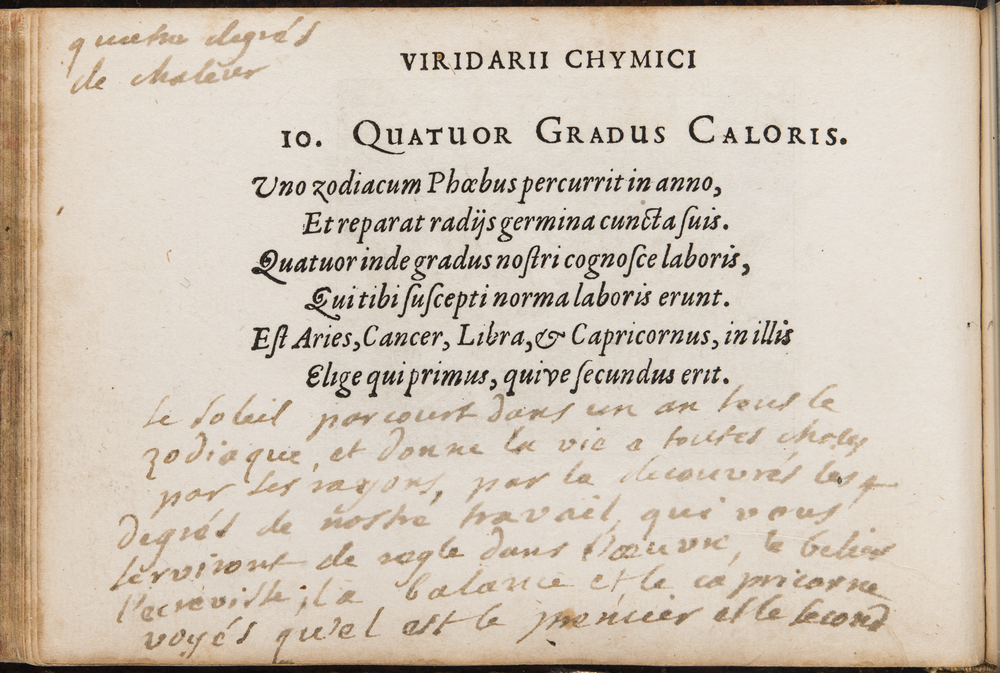 quatre degrés
de chaleur
VIRIDARII CHYMICI
10. QUATUOR GRADUS CALORIS.
Uno zodiacum Phœbus percurrit in anno,
Et reparat radijs germina cuncta ſuis.
Quatuor inde gradus noſtri cognoſce laboris,
Qui tibi ſuſcepti norma laboris erunt.
Eſt Aries, Cancer, Libra, & Capricornus, in illis
Elige qui primus, quive ſecundus erit.
le soleil parcourt dans un an tous le
zodiaque, et donne la vie a toutes choses
par ses rayons, par la decouvrés les 4
degrés de nostre travail, qui vous
serviront de regle dans l'œuvre, le belier
l'ecrevisse, la balance et le capricorne
voyés qu'el est le premier et le second